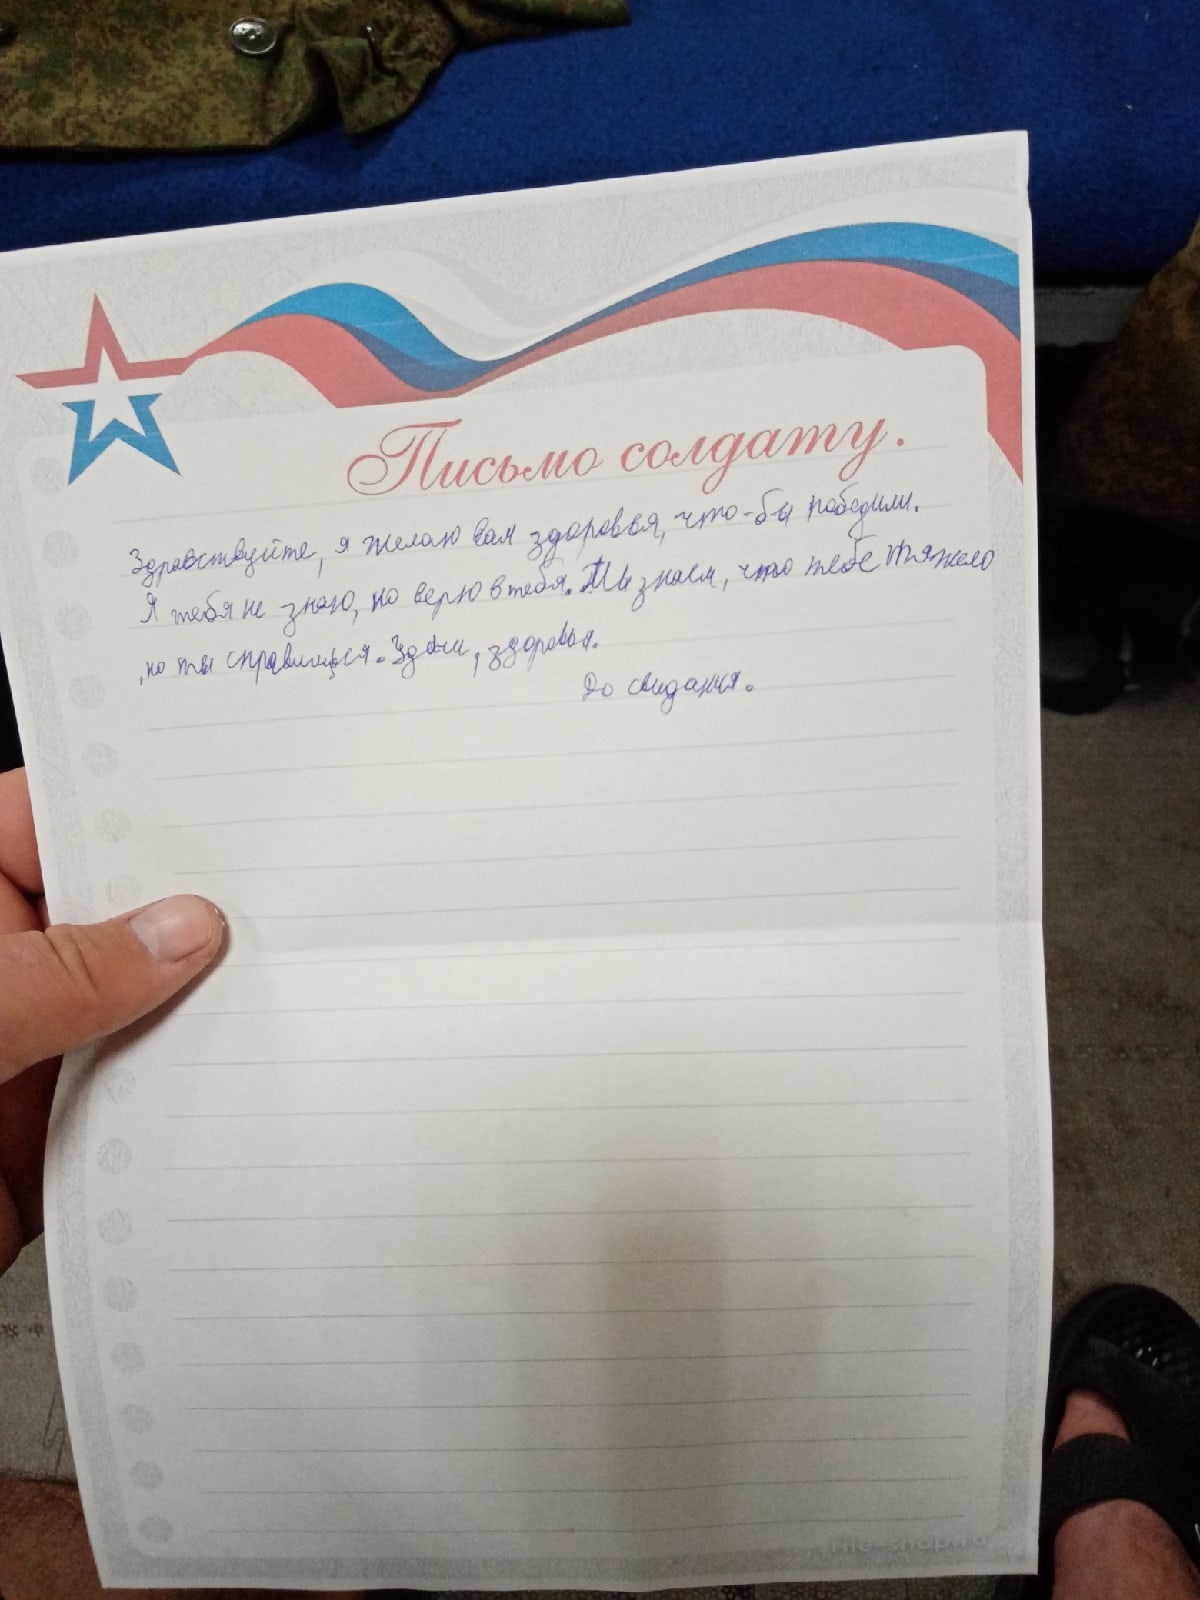 Письмо солдату.
Здравствуйте, я желаю вам здоровья, что-бы победили.
Я тебя не знаю, но верю в тебя. Мы знаем, что тебе тяжело
, но ты справишься. Удачи, здоровья.
До свидания.